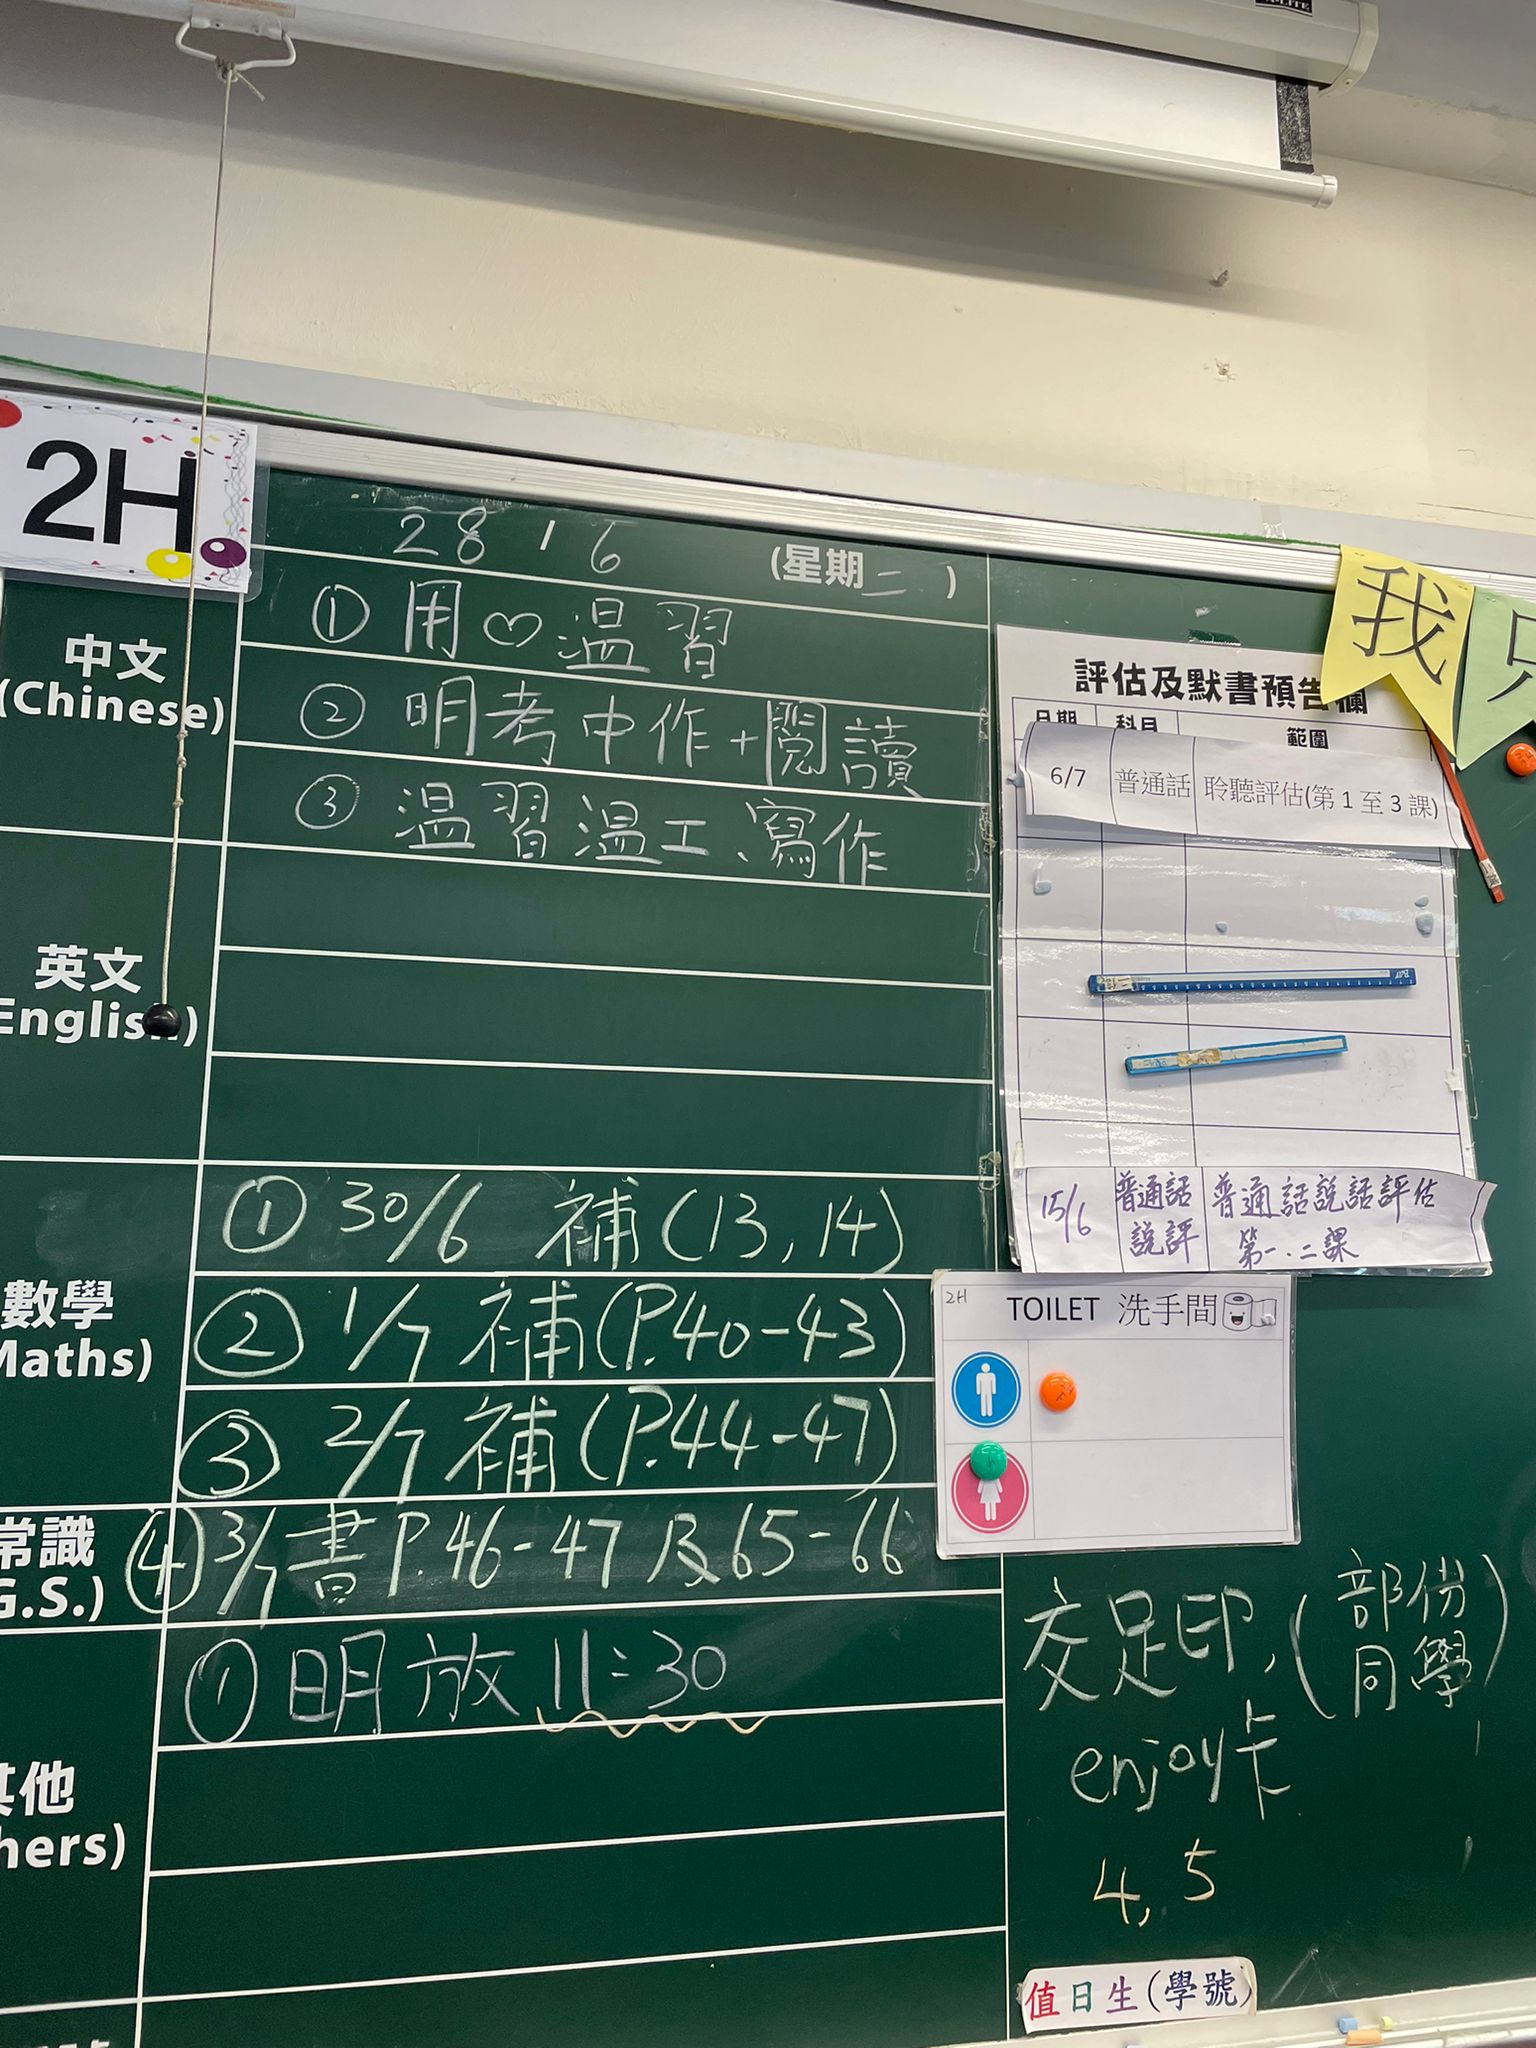 2H
28 / 6 (星期二)
中文
(Chinese)
① 用♡温習
② 明考中作+閱讀
③ 温習温工、寫作
英文
English)
數學
Maths)
① 30/6 補(13, 14)
② 1/7 補(P.40-43)
③ 2/7 補(P.44-47)
常識
G.S.)
④ 3/7 書P.46-47及65-66
① 明放11:30
其他
hers)
我
只
評估及默書預告欄
日期 科目 範圍
6/7 普通話 聆聽評估(第1至3課)
15/6 普通話說評 普通話說話評估第一、二課
2H
TOILET 洗手間
交足印, (部份同學)
enjoy卡
4, 5
值日生(學號)